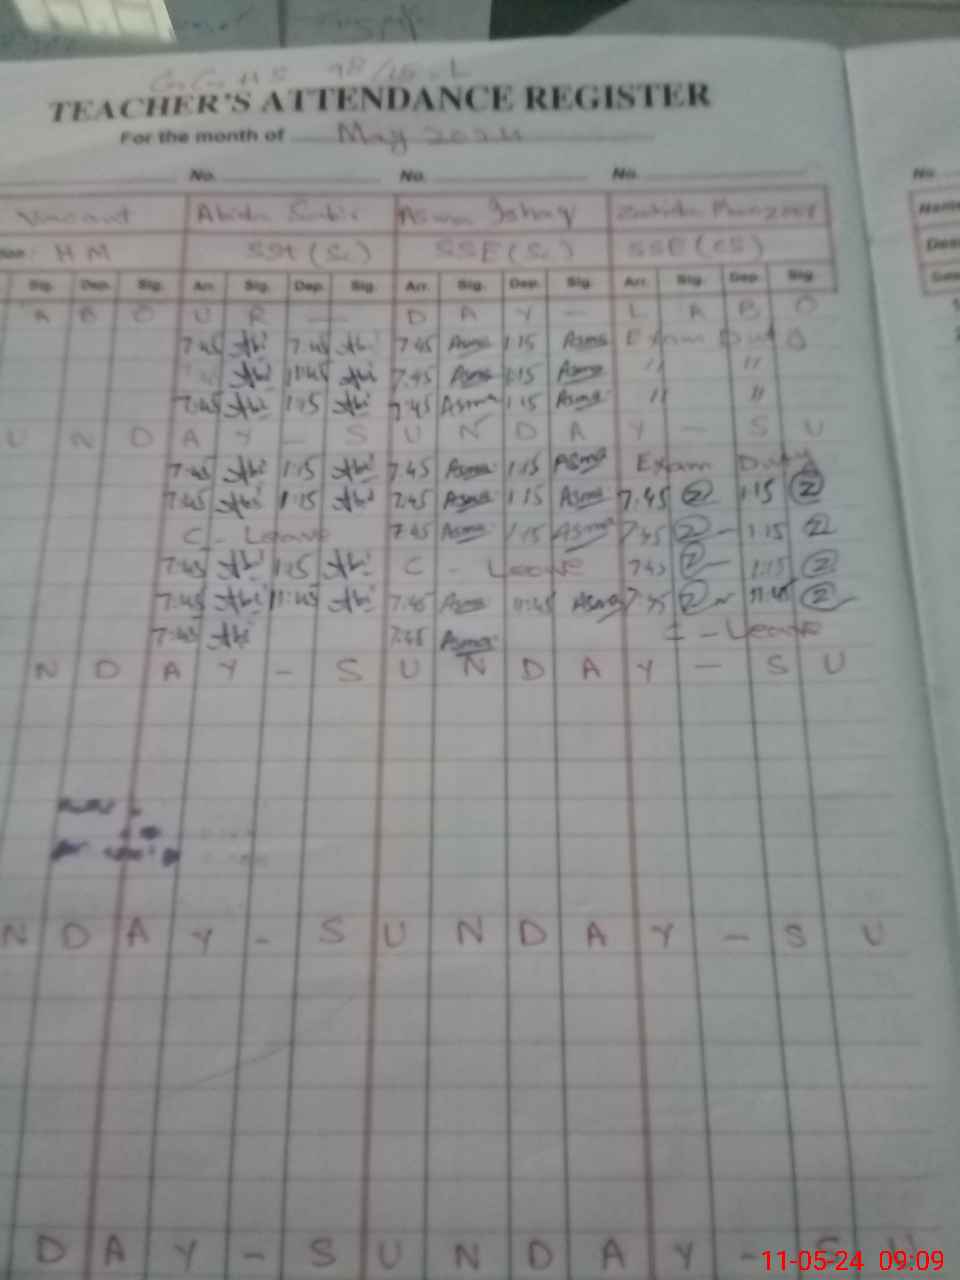 TEACHER'S ATTENDANCE REGISTER
For the month of May 2024
No. No. No. No.
Vacant Abida Asma Ishaq
HM SST (Sc) SSE (Sc) SSE (CS)
Sig. Dep. Sig. Arr. Sig. Dep. Sig. Arr. Sig. Dep. Sig. Arr. Sig. Dep. Sig.
A B O U R — D A Y — L A B O
7.45 Abi 7.45 Abi 7.45 Asma 1.15 Asma Exam Duty
Abi 11:45 Abi 7.45 Asma 1.15 Asma " "
7.45 Abi 1.15 Abi 7.45 Asma 1.15 Asma " "
U N D A Y - S U N D A Y - S U
7.45 Abi 1.15 Abi 7.45 Asma 1.15 Asma Exam Duty
7.45 Abi 1.15 Abi 7.45 Asma 1.15 Asma 7.45 1.15
C - Leave 7.45 Asma 1.15 Asma 7.45 1.15
7.45 Abi 1.15 Abi C - Leave 7.45 1.15
7.45 Abi 11:45 Abi 7.45 Asma 11:45 Asma 7.45 11:45
7.45 Abi 7.45 Asma C - Leave
N D A Y - S U N D A Y - S U
N D A Y - S U N D A Y - S U
D A Y - S U N D A Y - S U
11-05-24 09:09